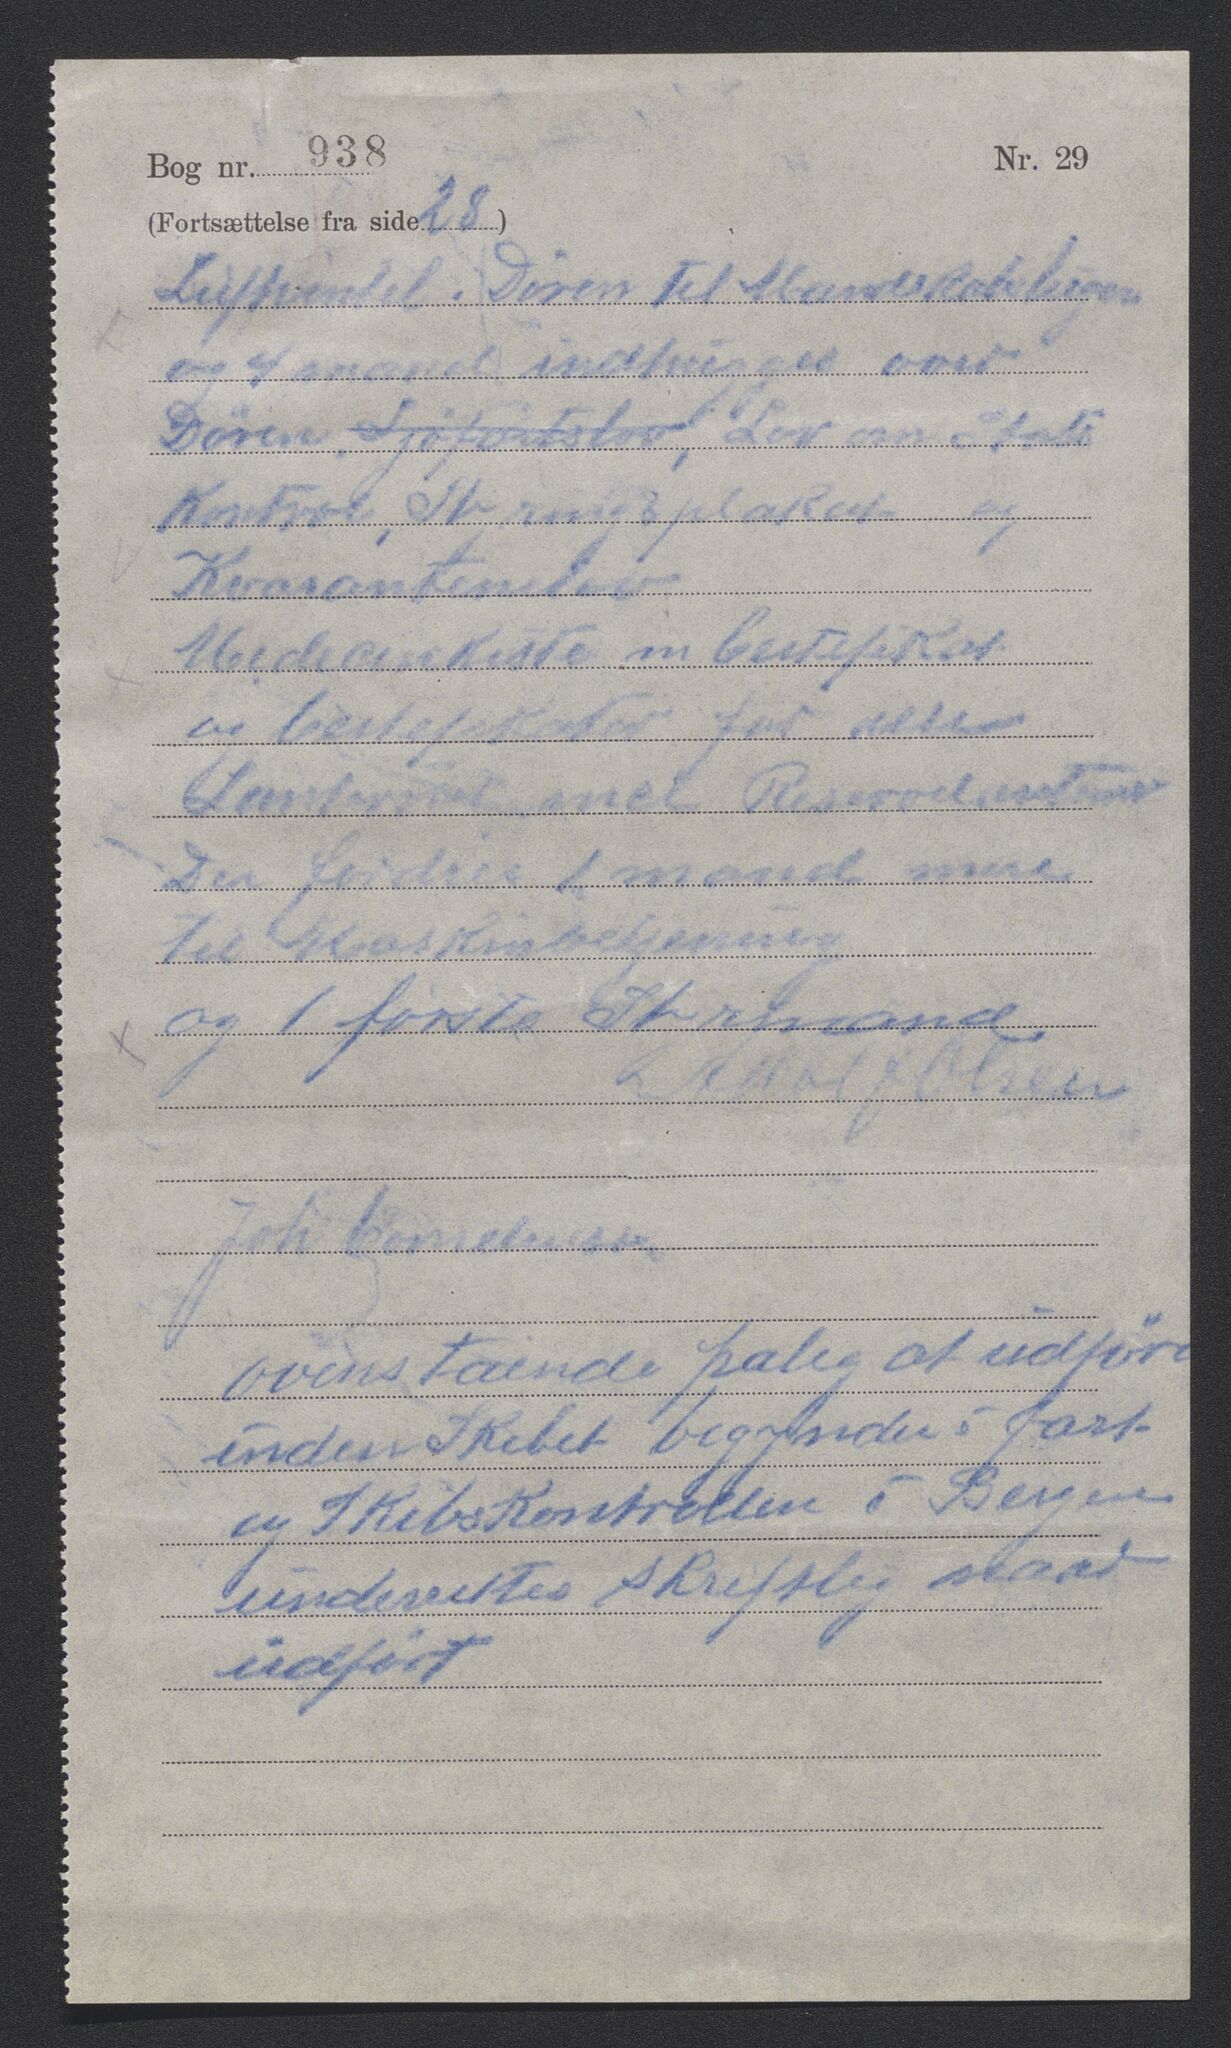 Bog nr. 938 Nr. 29
(Fortsættelse fra side 28)
Luftventil i Dören til
og 4 mand indhugges over
Dören, Sjöfartslov, Lov om Stats
Kontrol, Styringsplakat og
Kvarantenelov
Medicinkiste m Certifikat
og Certifikater for
Lanterner med
Der fordres 1 mand mere
til Maskinbetjening
og 1 förste Styrmand
Adolf Olsen
Joh Corneliussen
ovenstaaende paleg at udföre
inden Skibet begynder i fart
og Skibskontrollen i Bergen
underrettes skriftlig naar
udfört